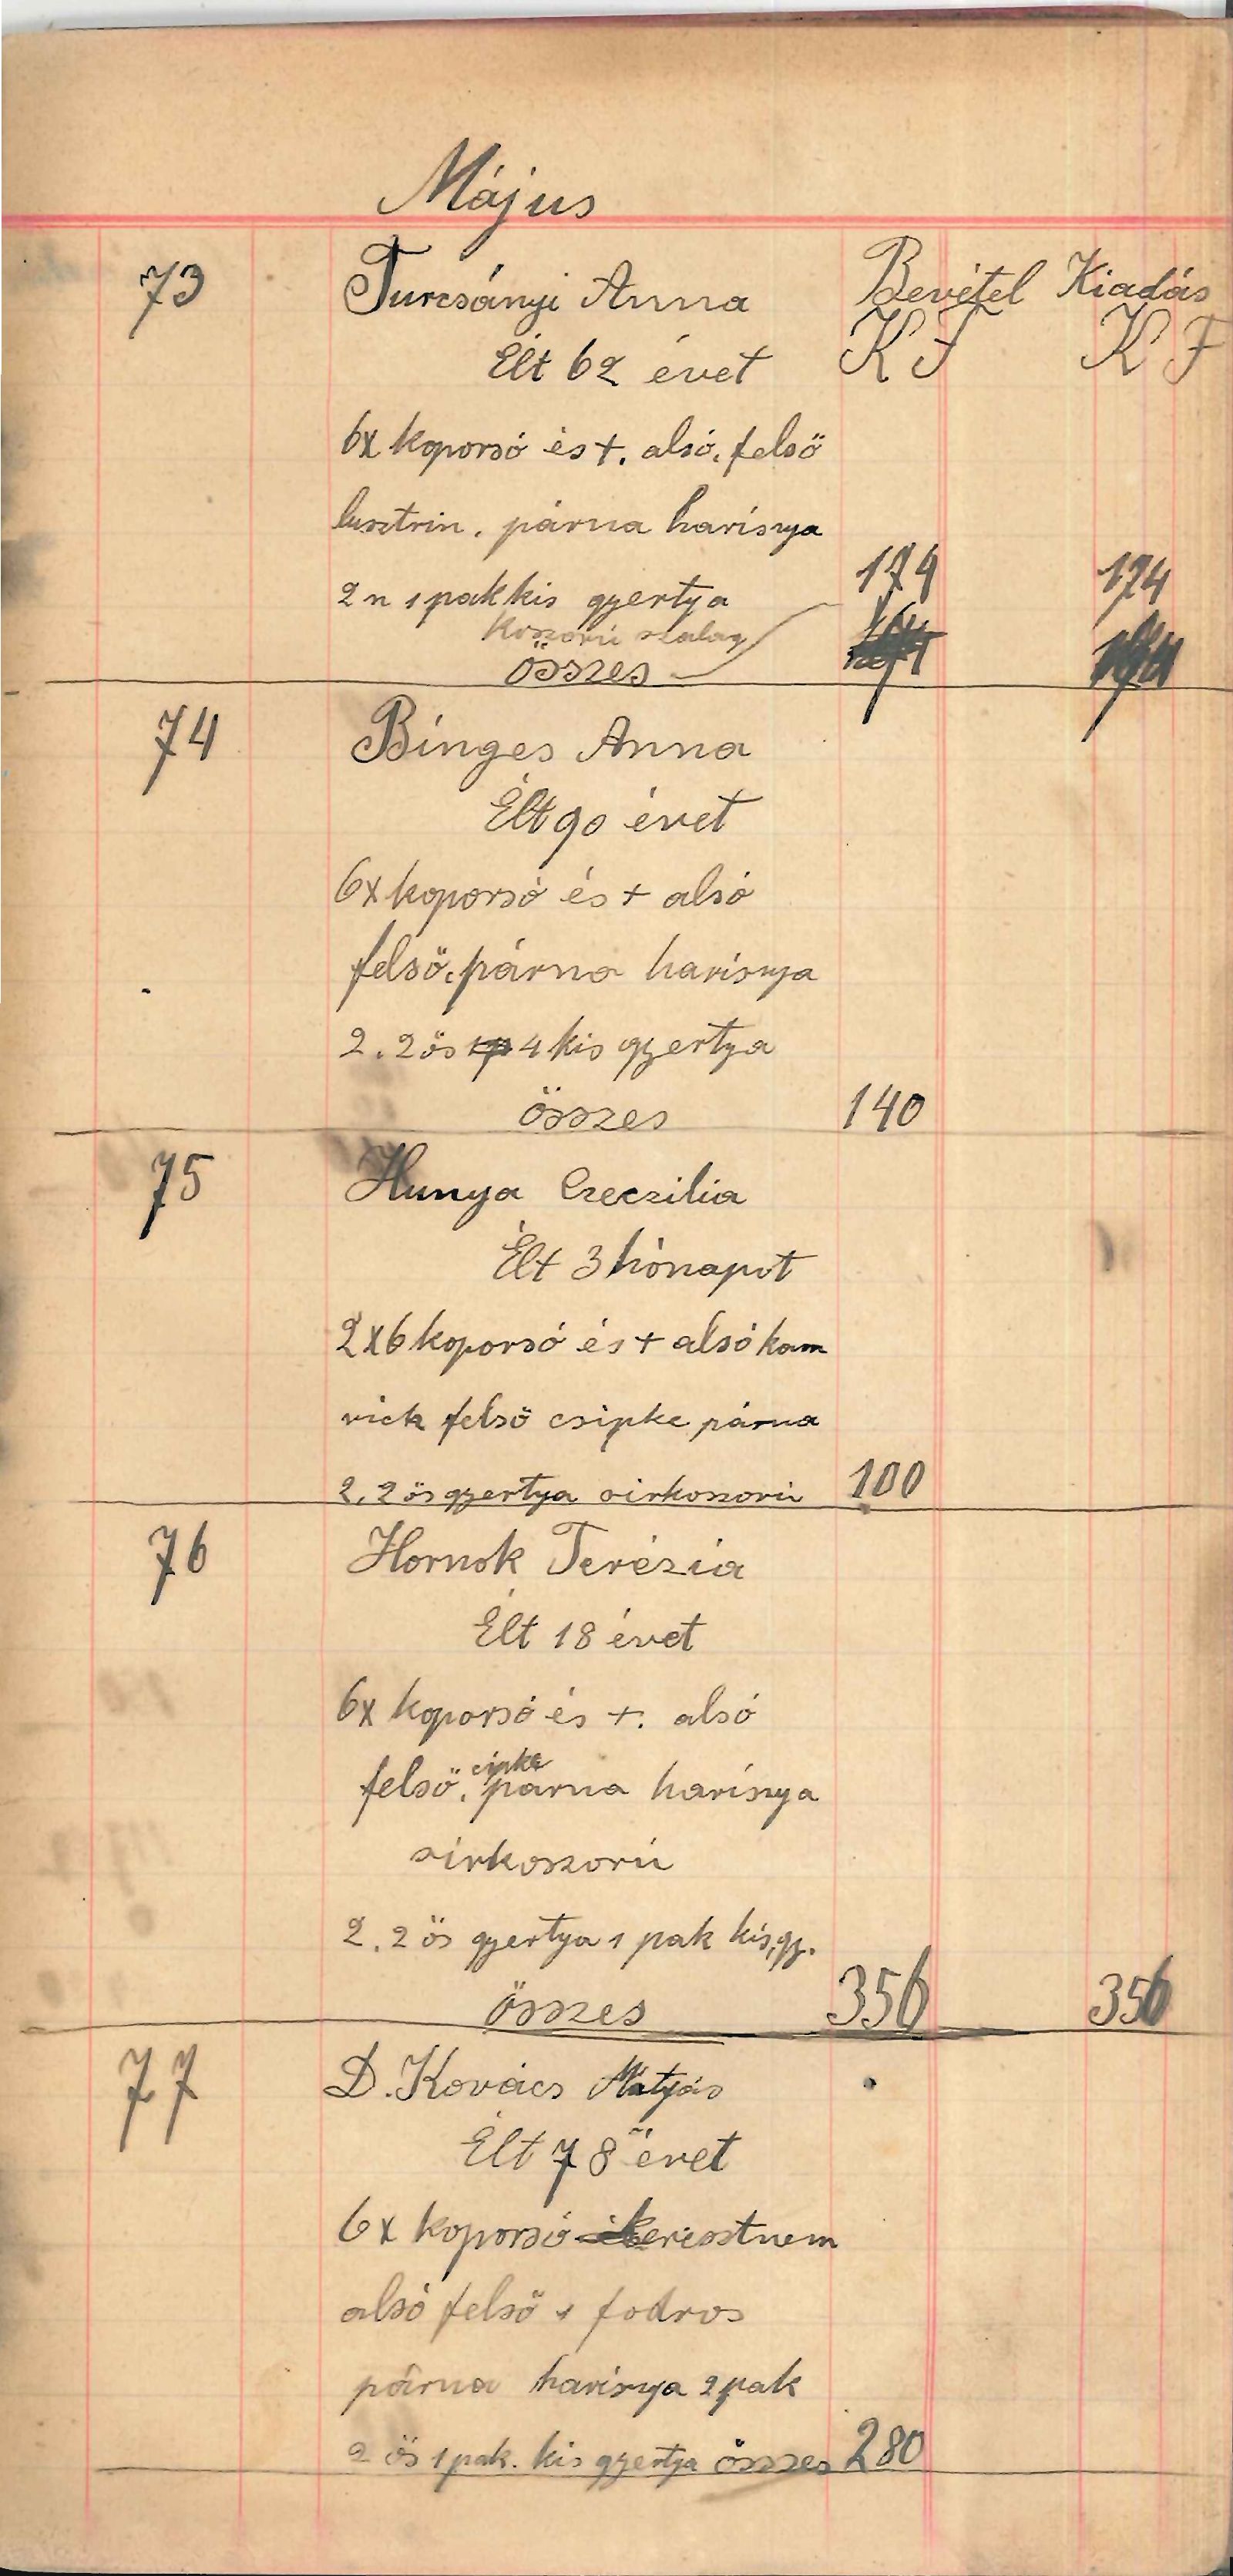 Május
73 Turcsányi Anna Bevétel Kiadás
Élt 62 évet K F K F
6x koporsó és +. alsó, felső
lusztrin, párna harisnya
2 n 1 pak kis gyertya 174 174
koszorú szalag
összes
74 Binges Anna
Élt 90 évet
6x koporsó és + alsó
felső, párna harisnya
2. 2ös 4 kis gyertya
összes 140
75 Hunya Czeczilia
Élt 3 hónapot
2x6 koporsó és + alsó kam
rick felső csipke párna
2. 2ös gyertya sirkoszorú 100
76 Hornok Terézia
Élt 18 évet
6x koporsó és +. alsó
cipke
felső, párna harisnya
sirkoszorú
2. 2 ös gyertya 1 pak kis gy.
összes 356 356
77 D. Kovács Mátyás
Élt 78 évet
6x koporsó keresztnem
alsó felső 1 fodros
párna harisnya 2 pak
2 ös 1 pak. kis gyertya összes 280